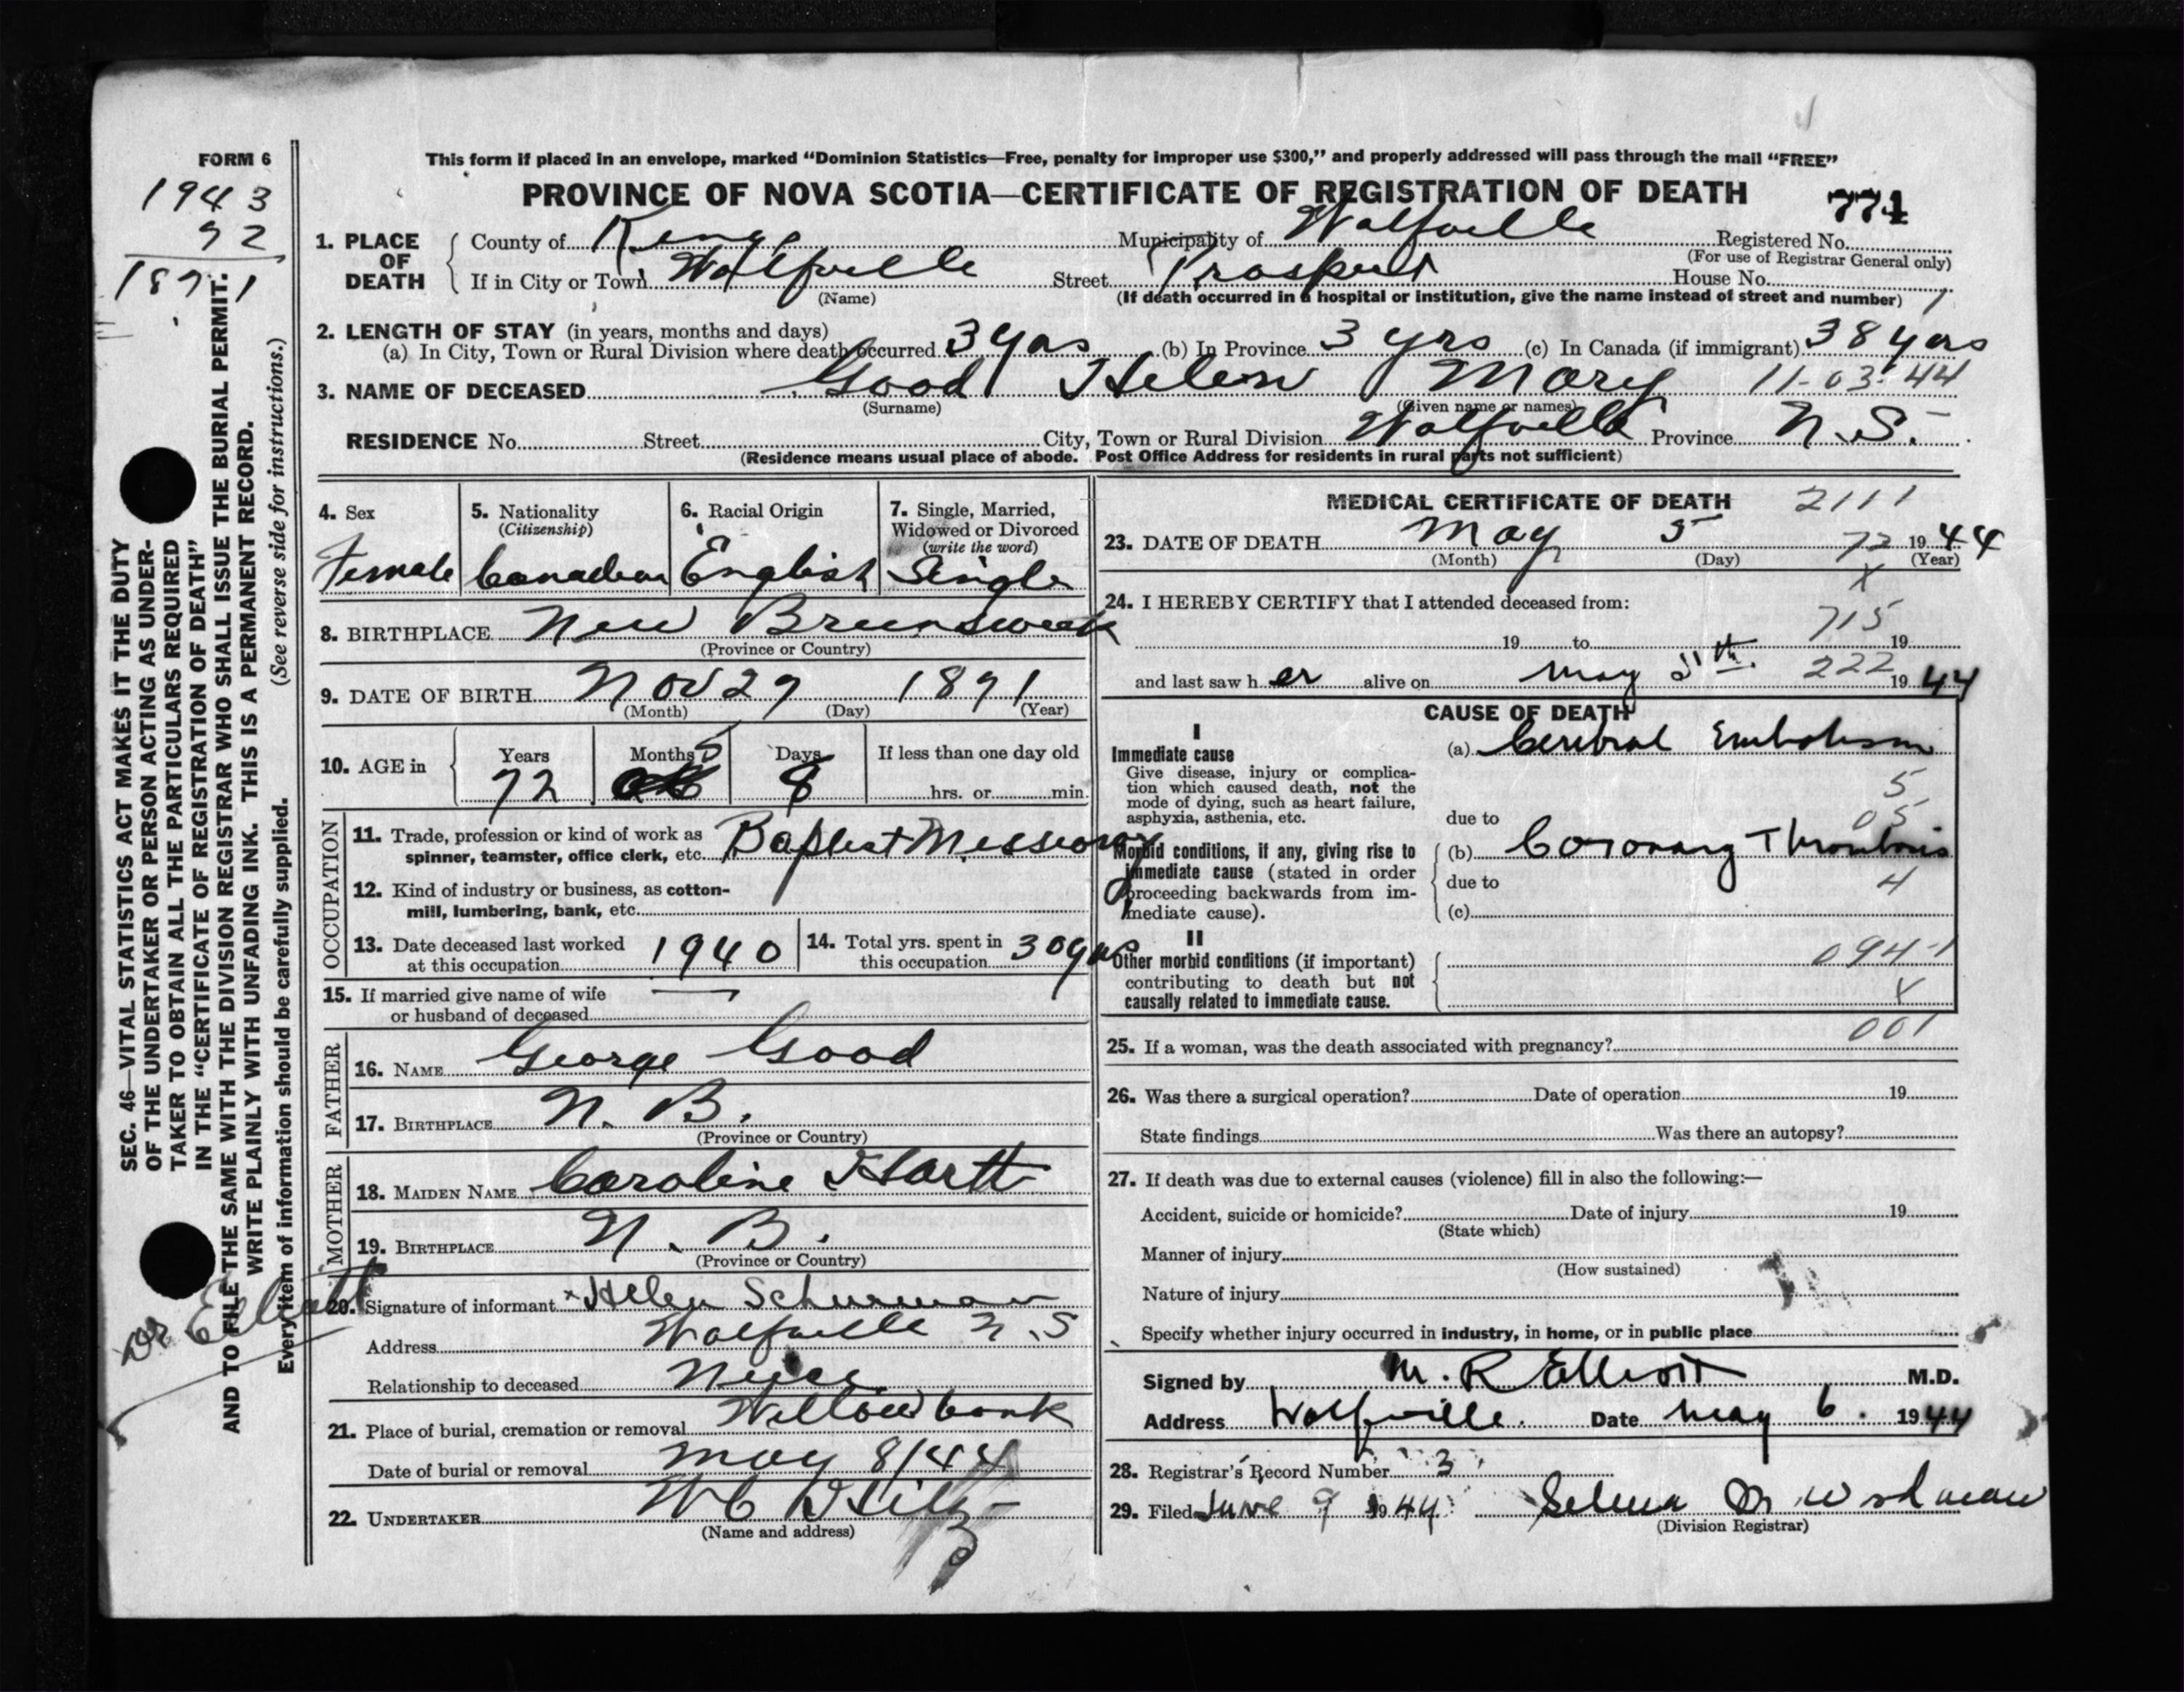 FORM 6
1943
92
1871
This form if placed in an envelope, marked "Dominion Statistics—Free, penalty for improper use $300," and properly addressed will pass through the mail "FREE"
PROVINCE OF NOVA SCOTIA—CERTIFICATE OF REGISTRATION OF DEATH
771
1. PLACE OF DEATH
County of Kings Municipality of Wolfville Registered No.
(For use of Registrar General only)
If in City or Town Wolfville Street Prospect House No.
(Name) (If death occurred in a hospital or institution, give the name instead of street and number) 1
2. LENGTH OF STAY (in years, months and days)
(a) In City, Town or Rural Division where death occurred 3 yrs (b) In Province 3 yrs (c) In Canada (if immigrant) 38 yrs
3. NAME OF DECEASED Good Helen Mary 11-03-44
(Surname) (Given name or names)
RESIDENCE No. Street City, Town or Rural Division Wolfville Province N.S.
(Residence means usual place of abode. Post Office Address for residents in rural parts not sufficient)
4. Sex
Female
5. Nationality
(Citizenship)
Canadian
6. Racial Origin
English
7. Single, Married,
Widowed or Divorced
(write the word)
Single
8. BIRTHPLACE New Brunswick
(Province or Country)
9. DATE OF BIRTH Nov 27 1871
(Month) (Day) (Year)
10. AGE in
Years Months Days If less than one day old
72 5 8 hrs. or min.
OCCUPATION
11. Trade, profession or kind of work as
spinner, teamster, office clerk, etc. Baptist Missionary
12. Kind of industry or business, as cotton-
mill, lumbering, bank, etc.
13. Date deceased last worked
at this occupation 1940
14. Total yrs. spent in
this occupation 30 yrs
15. If married give name of wife
or husband of deceased
FATHER
16. NAME George Good
17. BIRTHPLACE N. B.
(Province or Country)
MOTHER
18. MAIDEN NAME Caroline Hartt
19. BIRTHPLACE N. B.
(Province or Country)
20. Signature of informant x Helen Schurman
Address Wolfville N.S
Relationship to deceased Niece
21. Place of burial, cremation or removal Willowbank
Date of burial or removal May 8/44
22. UNDERTAKER W C
(Name and address)
MEDICAL CERTIFICATE OF DEATH 2111
23. DATE OF DEATH May 5 72 1944
(Month) (Day) (Year)
X
24. I HEREBY CERTIFY that I attended deceased from:
715
19 to 19
and last saw her alive on May 5th. 222 1944
CAUSE OF DEATH
I
Immediate cause
Give disease, injury or complica-
tion which caused death, not the
mode of dying, such as heart failure,
asphyxia, asthenia, etc.
(a) Cerebral Embolism
5
05
due to
Morbid conditions, if any, giving rise to
immediate cause (stated in order
proceeding backwards from im-
mediate cause).
(b) Coronary Thrombosis
due to 4
(c)
II
Other morbid conditions (if important)
contributing to death but not
causally related to immediate cause.
094-1
X
001
25. If a woman, was the death associated with pregnancy?
26. Was there a surgical operation? Date of operation 19
State findings Was there an autopsy?
27. If death was due to external causes (violence) fill in also the following:—
Accident, suicide or homicide? Date of injury 19
(State which)
Manner of injury
(How sustained)
Nature of injury
Specify whether injury occurred in industry, in home, or in public place
Signed by M. R Elliott M.D.
Address Wolfville. Date May 6. 1944
28. Registrar's Record Number 3
29. Filed June 9 1944 Selma M Wodman
(Division Registrar)
SEC. 46—VITAL STATISTICS ACT MAKES IT THE DUTY
OF THE UNDERTAKER OR PERSON ACTING AS UNDER-
TAKER TO OBTAIN ALL THE PARTICULARS REQUIRED
IN THE "CERTIFICATE OF REGISTRATION OF DEATH"
AND TO FILE THE SAME WITH THE DIVISION REGISTRAR WHO SHALL ISSUE THE BURIAL PERMIT.
WRITE PLAINLY WITH UNFADING INK. THIS IS A PERMANENT RECORD.
Every item of information should be carefully supplied. (See reverse side for instructions.)
Dr Elliott